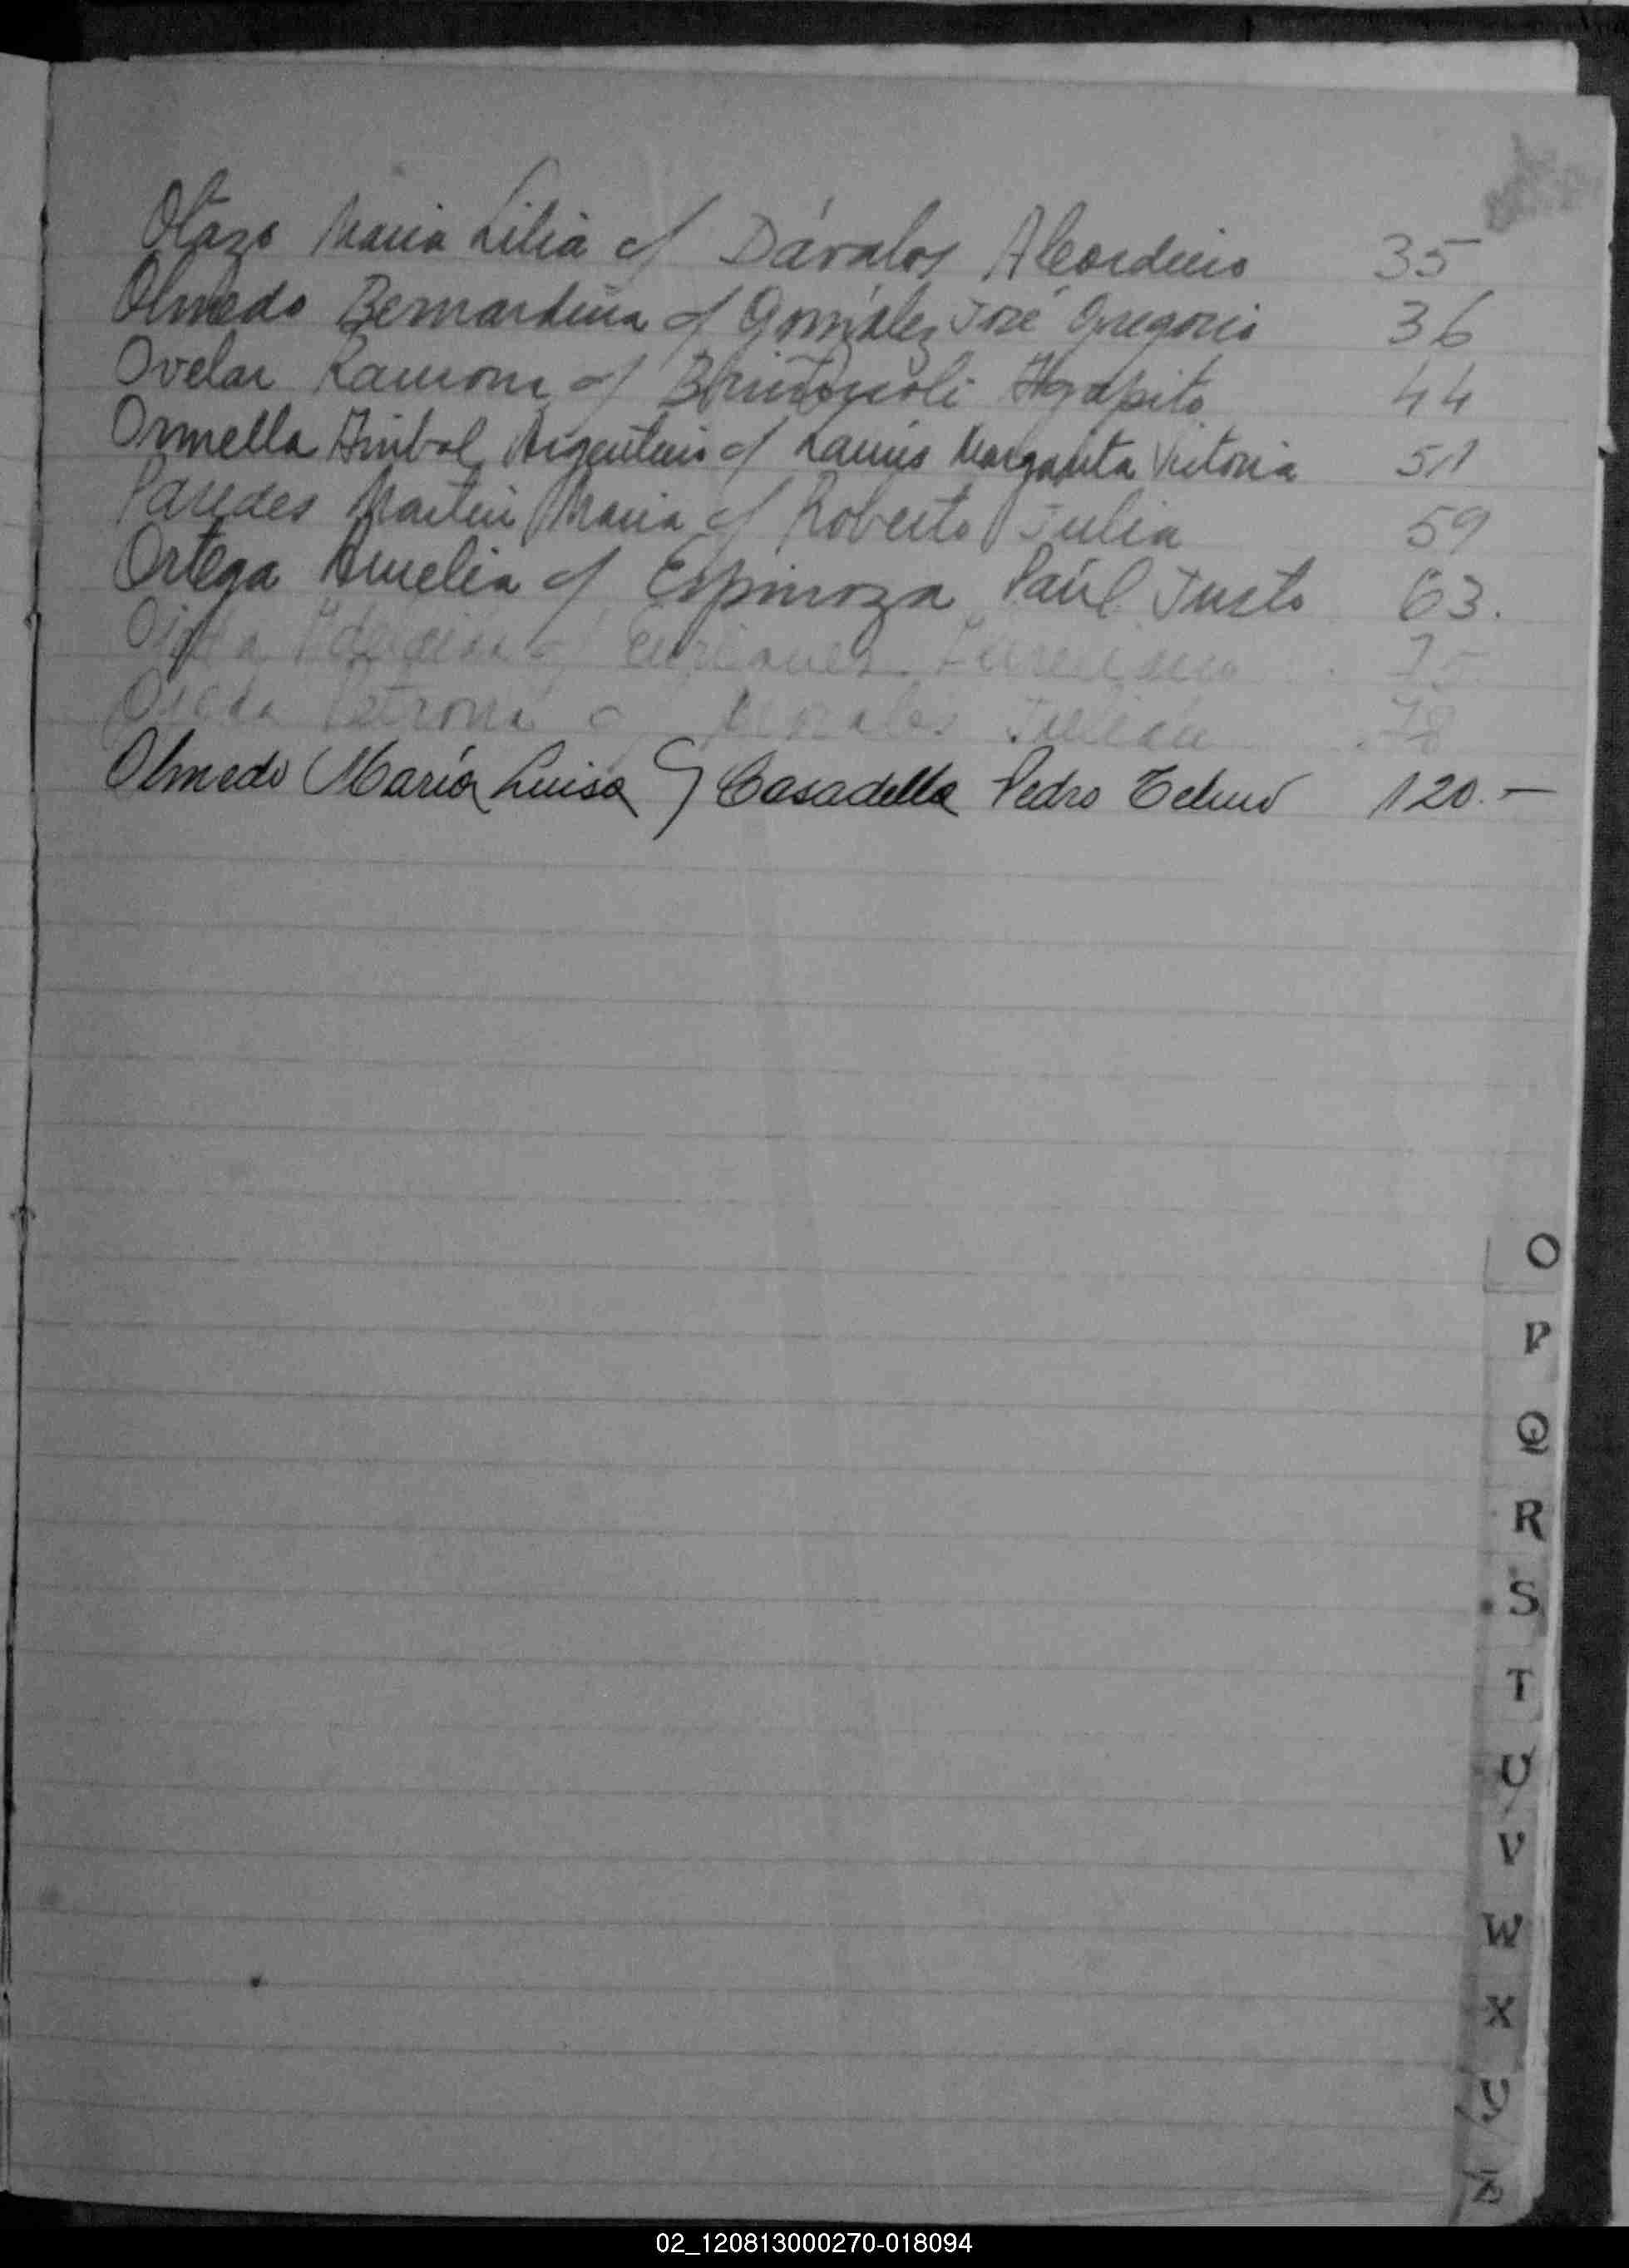 Otazo Maria Lilia c/ Dávalos 35
Olmedo Bernardina c/ González José Gregorio 36
Ovelar Ramona c/ Agapito 44
Ormella Anibal Argentino c/ Margarita Victoria 51
Paredes Martin Maria c/ Roberto Julia 59
Ortega Amelia c/ Espinoza Paúl Justo 63.
c/ 75
Petrona c/ Morales Julián 78
Olmedo María Luisa c/ Casadella Pedro Telmo 120.-
O
P
Q
R
S
T
U
V
W
X
Y
Z
02_120813000270-018094